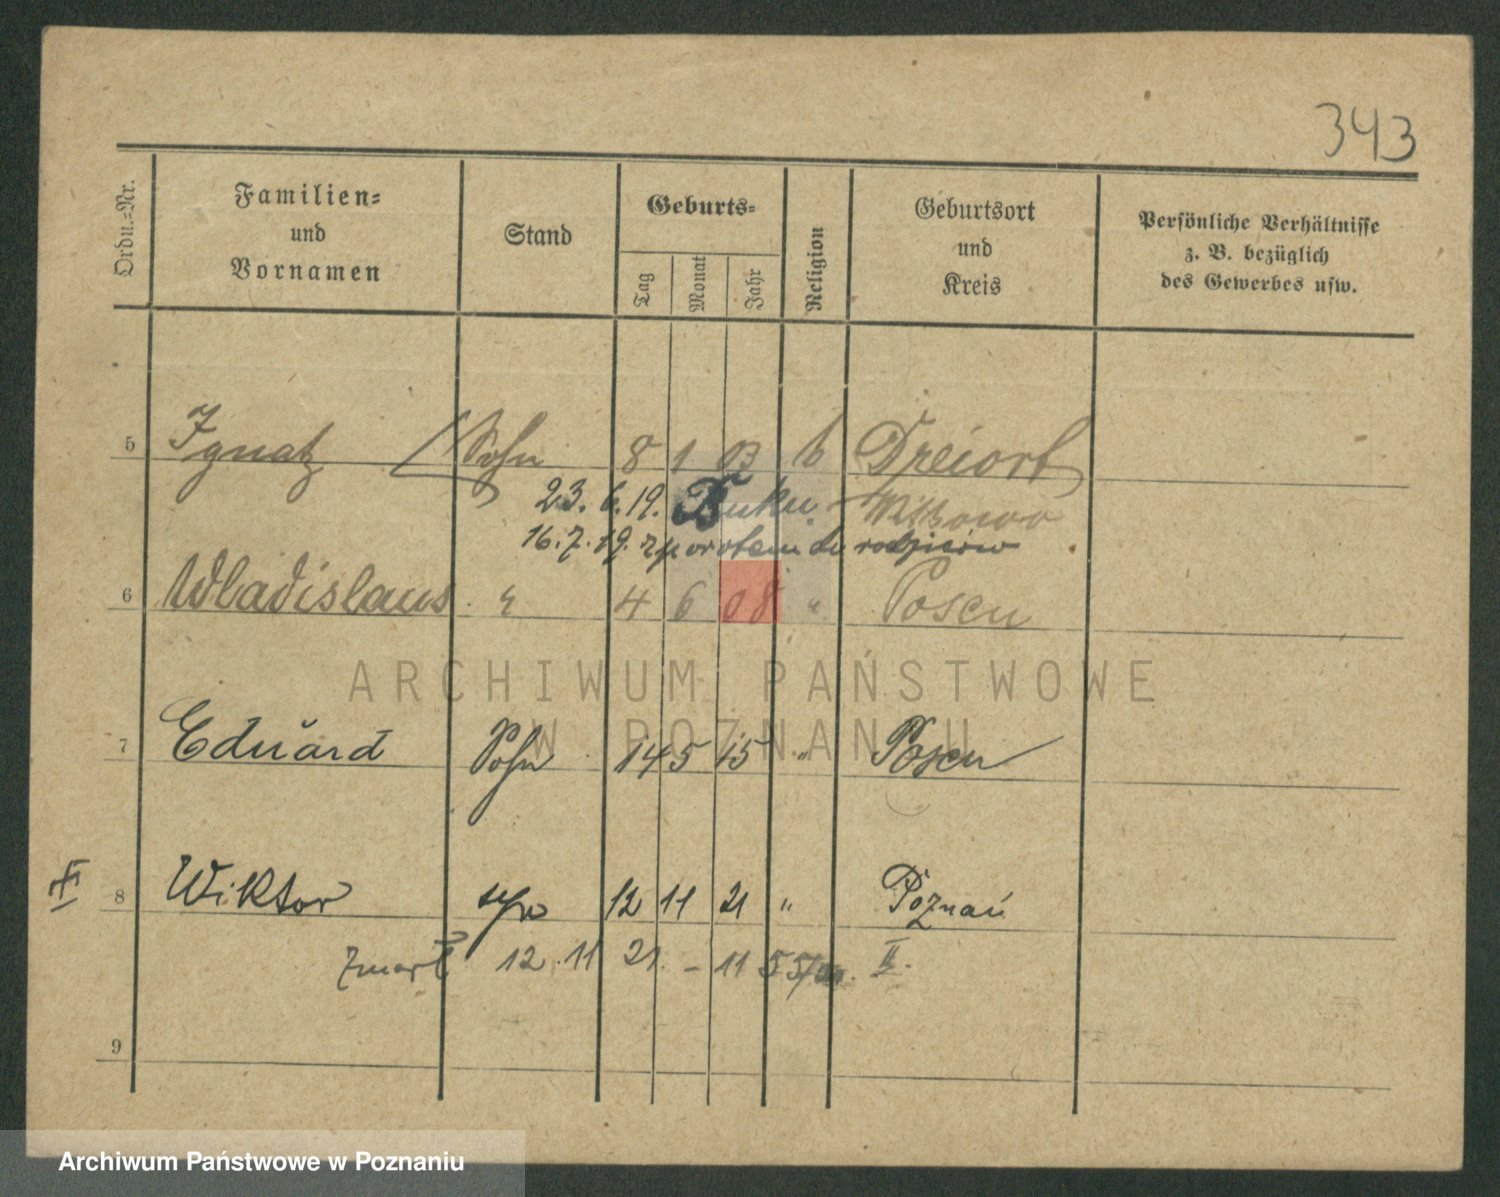 343
Ordn.=Nr.
Familien=
und
Vornamen
Stand
Geburts=
Tag
Monat
Jahr
Religion
Geburtsort
und
Kreis
Persönliche Verhältnisse
z. B. bezüglich
des Gewerbes usw.
5 Ignatz Sohn 8 1 03 k Dreiort
23. 6. 19. Buku Witkowo
16. 7. 19. zpowrotem do rodziców
6 Wladislaus " 4 6 08 " Posen
ARCHIWUM PAŃSTWOWE
W POZNANIU
7 Eduard Sohn 14 5 15 " Posen
8 Wiktor syn 12 11 21 " Poznań
zmarł 12. 11 21. - 11 II.
9
Archiwum Państwowe w Poznaniu